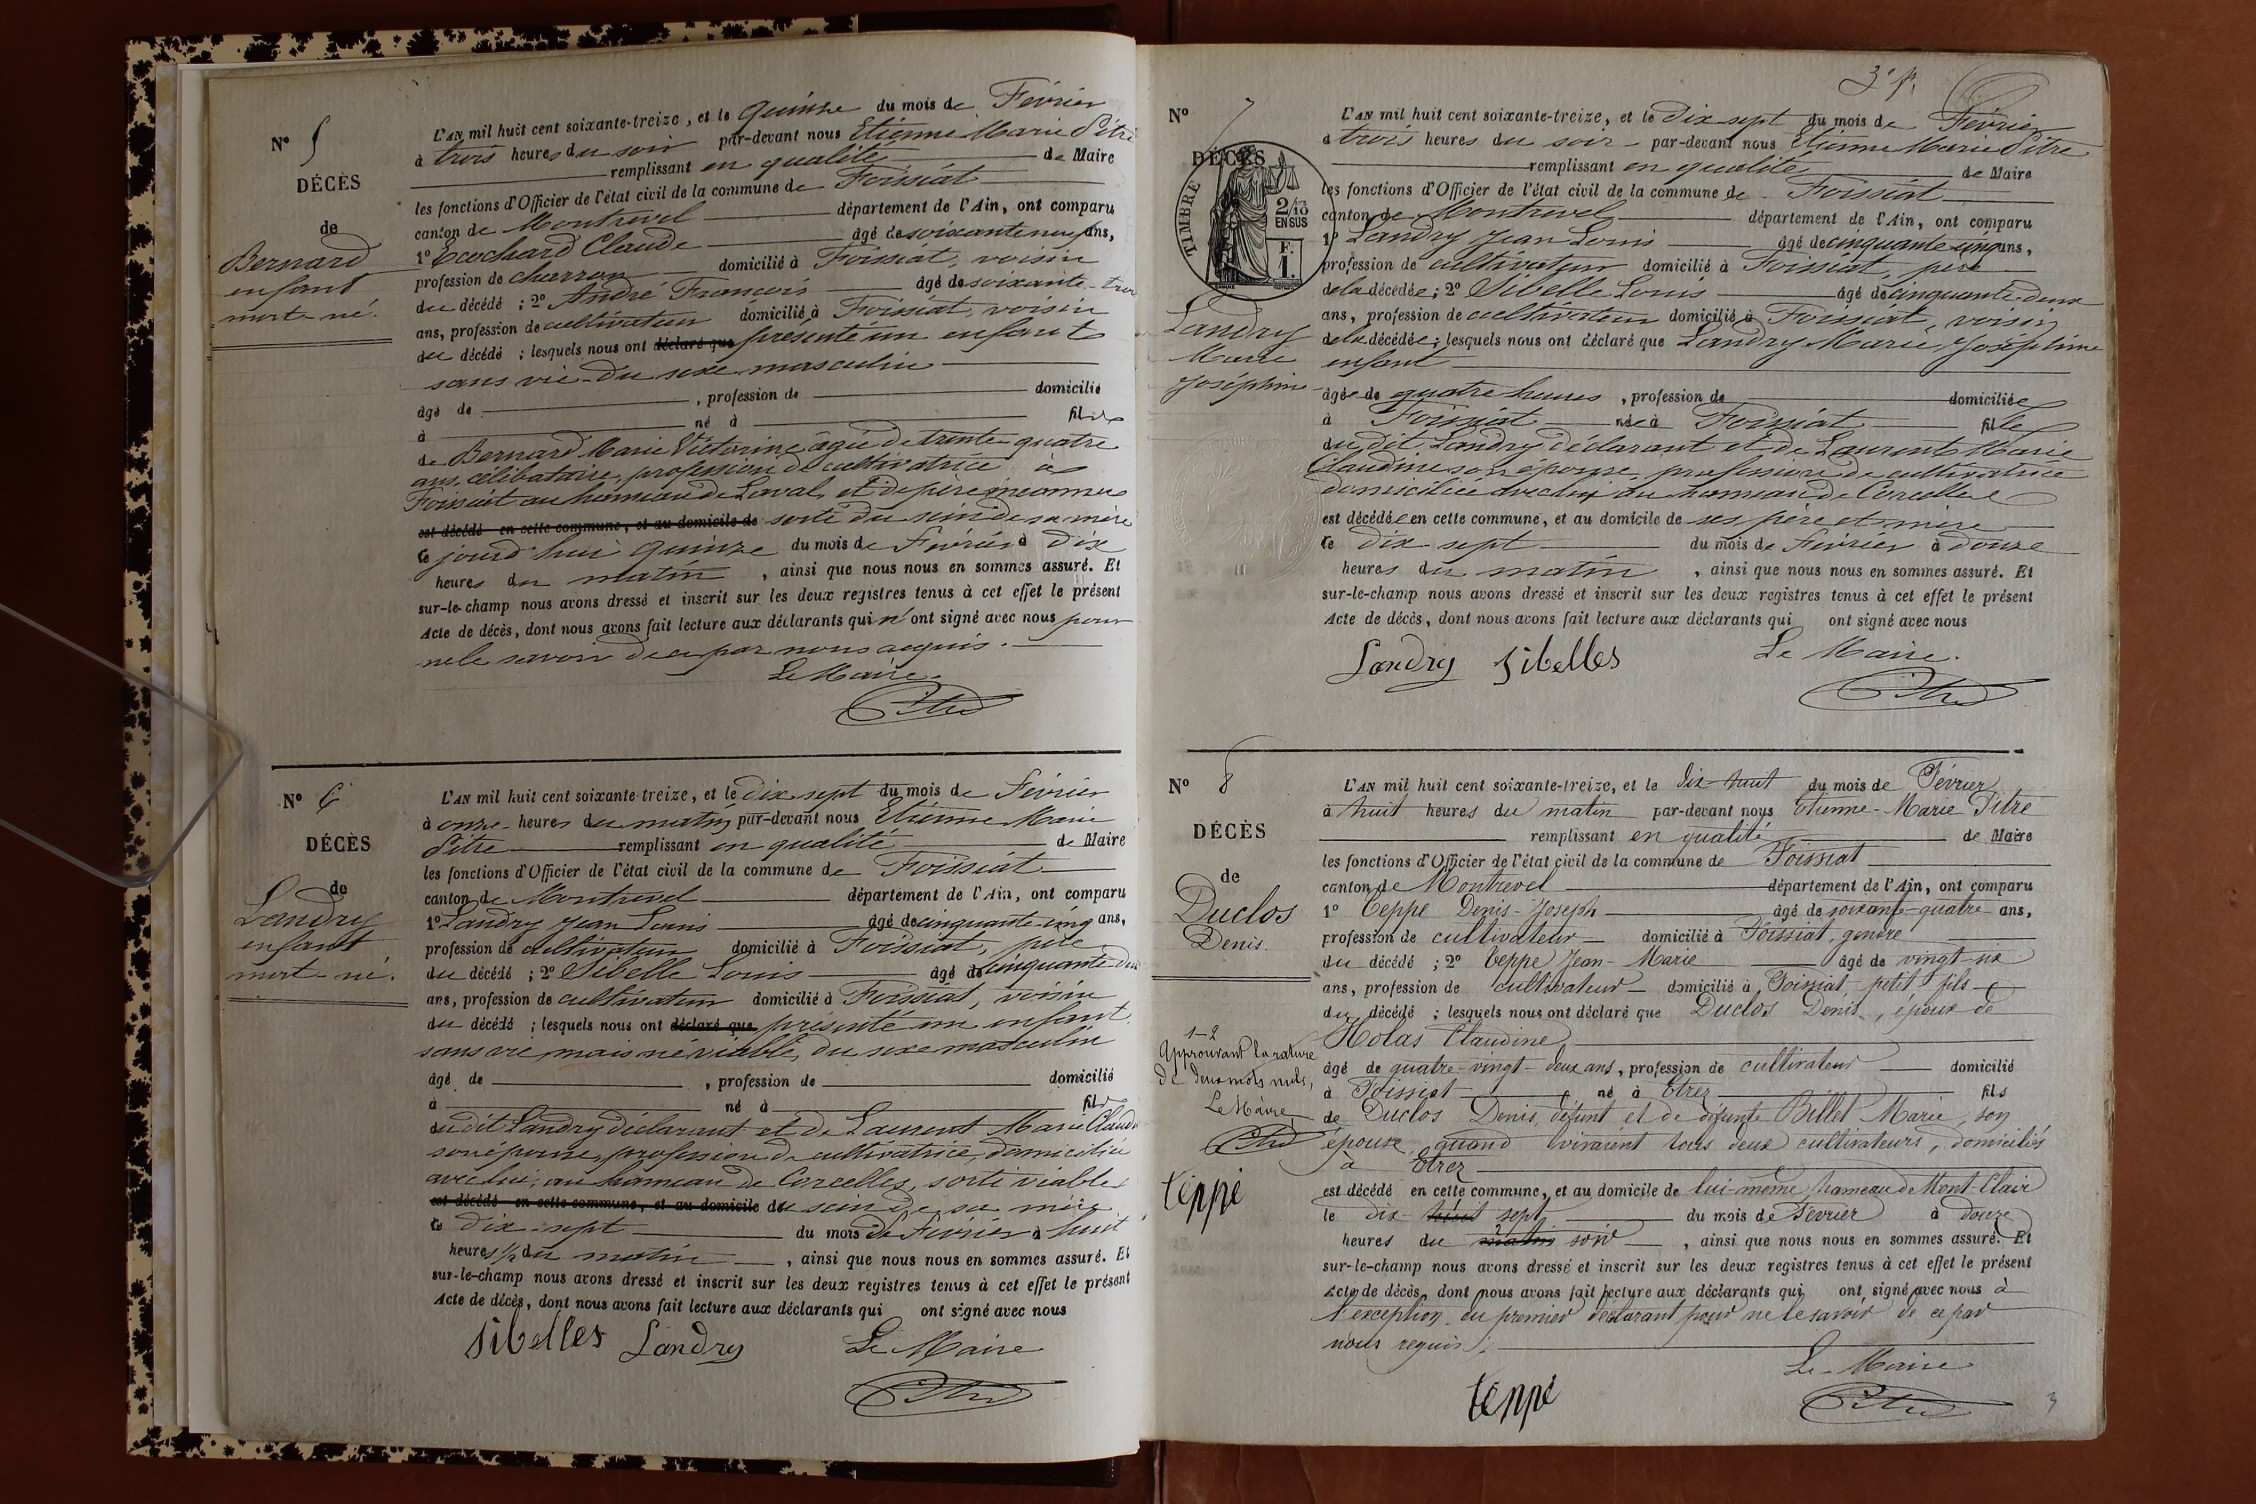 N° 5
DÉCÈS
de
Bernard
enfant
mort-né.
L'AN mil huit cent soixante-treize, et le quinze du mois de Février
à trois heures du soir par-devant nous Etienne Marie Pitre
remplissant en qualité de Maire
les fonctions d'Officier de l'état civil de la commune de Foissiat
canton de Montrevel département de l'Ain, ont comparu
1° Ecochard Claude âgé de soixante neuf ans,
profession de charron domicilié à Foissiat, voisin
du décédé ; 2° André François âgé de soixante-trois
ans, profession de cultivateur domicilié à Foissiat, voisin
du décédé ; lesquels nous ont déclaré que présenté un enfant
sans vie du sexe masculin
âgé de , profession de domicilié
à né à fils
de Bernard Marie Victorine âgée de trente quatre
ans, célibataire, profession de cultivatrice à
Foissiat au hameau de Laval, et de père inconnu
est décédé en cette commune, et au domicile de sorti du sein de sa mère
ce jourd'hui quinze du mois de Février à dix
heures du matin , ainsi que nous nous en sommes assuré. Et
sur-le-champ nous avons dressé et inscrit sur les deux registres tenus à cet effet le présent
Acte de décès, dont nous avons fait lecture aux déclarants qui n'ont signé avec nous pour
ne le savoir de ce par nous requis.
Le Maire.
Pitre
N° 6
DÉCÈS
de
Landry
enfant
mort-né.
L'AN mil huit cent soixante-treize, et le dix sept du mois de Février
à onze heures du matin par-devant nous Etienne Marie
Pitre remplissant en qualité de Maire
les fonctions d'Officier de l'état civil de la commune de Foissiat
canton de Montrevel département de l'Ain, ont comparu
1° Landry Jean Louis âgé de cinquante-cinq ans,
profession de cultivateur domicilié à Foissiat, père
du décédé ; 2° Sibelle Louis âgé de cinquante deux
ans, profession de cultivateur domicilié à Foissiat, voisin
du décédé ; lesquels nous ont déclaré que présenté un enfant
sans vie mais né viable, du sexe masculin
âgé de , profession de domicilié
à né à fils
du dit Landry déclarant et de Laurent Marie Claudine
son épouse, profession de cultivatrice, domiciliée
avec lui, au hameau de Corcelles, sorti viable
est décédé en cette commune, et au domicile du sein de sa mère
le dix-sept du mois de Février à huit
heures 1/2 du matin , ainsi que nous nous en sommes assuré. Et
sur-le-champ nous avons dressé et inscrit sur les deux registres tenus à cet effet le présent
Acte de décès, dont nous avons fait lecture aux déclarants qui ont signé avec nous
Sibelles Landry Le Maire
Pitre
3e f.
N° 7
DÉCÈS
TIMBRE
2/10
EN SUS
F.
1.
Landry
Marie
Joséphine
L'AN mil huit cent soixante-treize, et le dix sept du mois de Février
à trois heures du soir par-devant nous Etienne Marie Pitre
remplissant en qualité de Maire
les fonctions d'Officier de l'état civil de la commune de Foissiat
canton de Montrevel département de l'Ain, ont comparu
1° Landry Jean Louis âgé de cinquante cinq ans,
profession de cultivateur domicilié à Foissiat, père
de la décédée ; 2° Sibelle Louis âgé de cinquante-deux
ans, profession de cultivateur domicilié à Foissiat, voisin
de la décédée ; lesquels nous ont déclaré que Landry Marie, Joséphine
enfant
âgée de quatre heures , profession de domiciliée
à Foissiat née à Foissiat fille
du dit Landry déclarant et de Laurent Marie
Claudine son épouse, profession de cultivatrice
domiciliée avec lui au hameau de Corcelles
est décédée en cette commune, et au domicile de ses père et mère
le dix-sept du mois de Février à douze
heures du matin , ainsi que nous nous en sommes assuré. Et
sur-le-champ nous avons dressé et inscrit sur les deux registres tenus à cet effet le présent
Acte de décès, dont nous avons fait lecture aux déclarants qui ont signé avec nous
Landry Sibelles Le Maire.
Pitre
N° 8
DÉCÈS
de
Duclos
Denis.
1-2
Approuvant la rature
de deux mots nuls,
Le Maire
Pitre
teppe
L'AN mil huit cent soixante-treize, et le dix-huit du mois de Février
à huit heures du matin par-devant nous Etienne-Marie Pitre
remplissant en qualité de Maire
les fonctions d'Officier de l'état civil de la commune de Foissiat
canton de Montrevel département de l'Ain, ont comparu
1° Teppe Denis-Joseph âgé de soixante-quatre ans,
profession de cultivateur domicilié à Foissiat, gendre
du décédé ; 2° Teppe Jean-Marie âgé de vingt-six
ans, profession de cultivateur domicilié à Foissiat petit-fils
du décédé ; lesquels nous ont déclaré que Duclos Denis, époux de
Holas Claudine
âgé de quatre-vingt-deux ans, profession de cultivateur domicilié
à Foissiat né à Etrez fils
de Duclos Denis, défunt et de défunte Billet Marie, son
épouse, quand vivaient tous deux cultivateurs, domiciliés
à Etrez
est décédé en cette commune, et au domicile de lui-même hameau de Mont-Clair
le dix-huit sept du mois de Février à douze
heures du matin soir , ainsi que nous nous en sommes assuré. Et
sur-le-champ nous avons dressé et inscrit sur les deux registres tenus à cet effet le présent
Acte de décès, dont nous avons fait lecture aux déclarants qui ont signé avec nous à
l'exception du premier déclarant pour ne le savoir de ce par
nous requis.
Le Maire
teppe Pitre
3